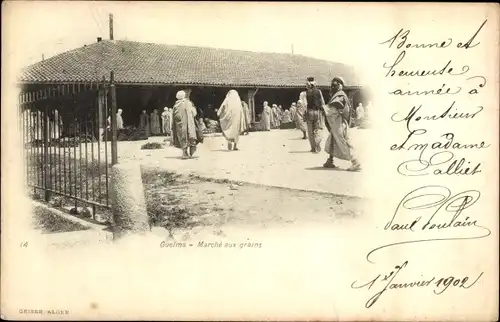 Bonne et
heureuse
année à
Monsieur
et madame
Calliet
Paul Poulain
1er Janvier 1902
14
Guelma - Marché aux grains
GEISER-ALGER